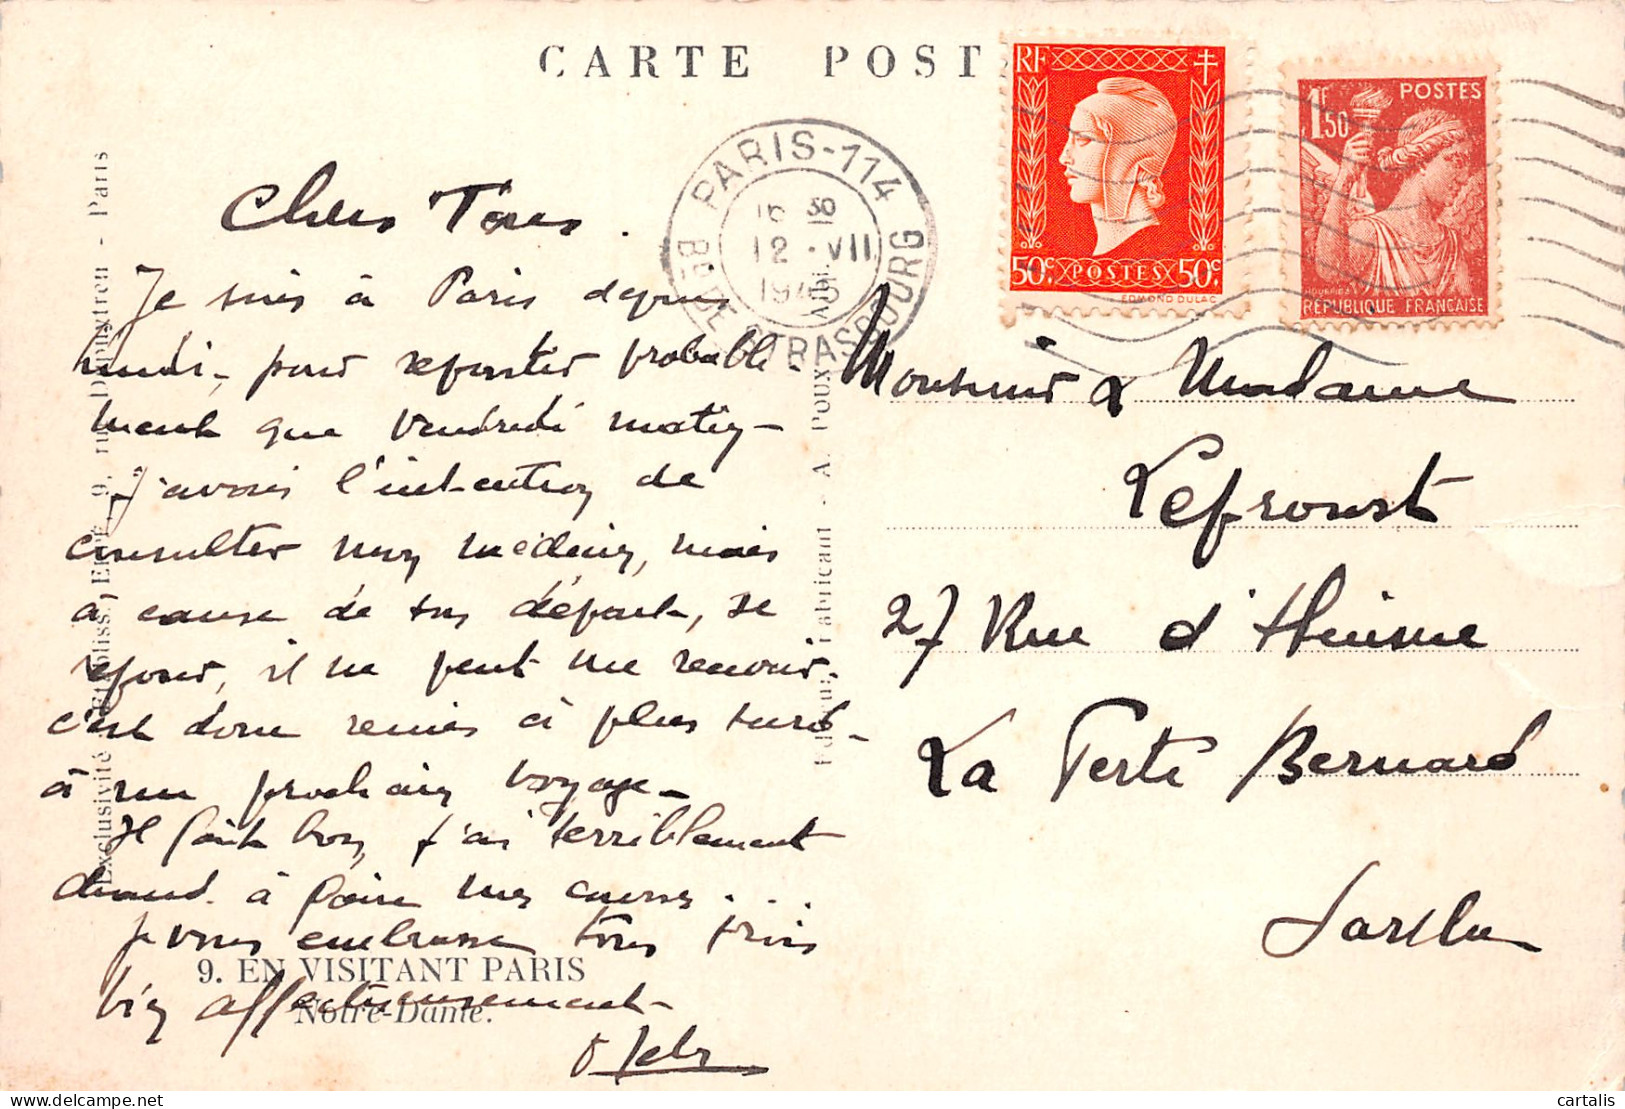 CARTE POST
RF
50c POSTES 50c
EDMOND DULAC
1F50 POSTES
RÉPUBLIQUE FRANÇAISE
PARIS-114
16 30
12 · VII
1945
Bd DE STRASBOURG
Chers Tous.
Je suis à Paris depuis
lundi, pour repartir probable-
ment que vendredi matin -
J'avais l'intention de
consulter mon médecin, mais
à cause de son départ, ce
jour, il ne peut me recevoir.
c'est donc remis à plus tard -
à un prochain voyage -
Il fait bon, j'ai terriblement
chaud à faire mes courses . . .
Je vous embrasse tous trois
bien affectueusement -
Monsieur & Madame
Lefroust
27 Rue d'Huisne
La Ferté Bernard
Sarthe
9. EN VISITANT PARIS
Notre-Dame.
Exclusivité Etabliss. 9, rue Dupuytren - Paris
A. POUX, Albi. fabricant
cartalis